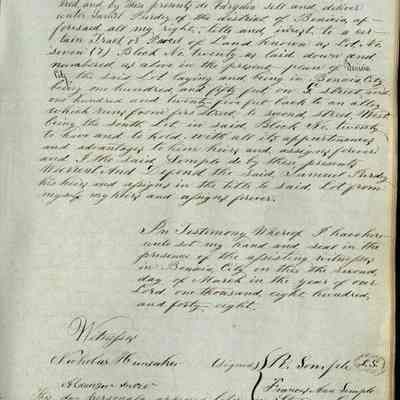 and by this presents do bargain sell and deliver
unto Samuel Purdy of the district of Benicia af-
foresaid all my right, title and interest, to a cer-
tain Tract or Parcel of Land known as Lot No
seven (7) Block No Twenty as laid down and
numbered as above in the present plan of Benicia
City the said Lot laying and being in Benicia City
being one hundred and fifty feet on G street and
one hundred and twenty five feet back to an alley
which runs from first street to second street, West
being the sixth lot in said Block No twenty
to have and to hold with all its appurtenances
and advantages to him heirs and assigns forever
and I the said Semple do by these presents
Warrent And defend the said, Samuel Purdy
his heirs and assigns in the title to said Lot from
myself my heirs and assigns forever.
In Testimony Whereof I have here-
unto set my hand and seal in the
presence of the assisting witnesses
in Benicia City on this the second
day of March in the year of our
Lord one thousand eight hundred,
and forty-eight.
Witnesses
Nicholas Hunsaker (signed) R. Semple L.S.
Frances Ann Semple
day personally